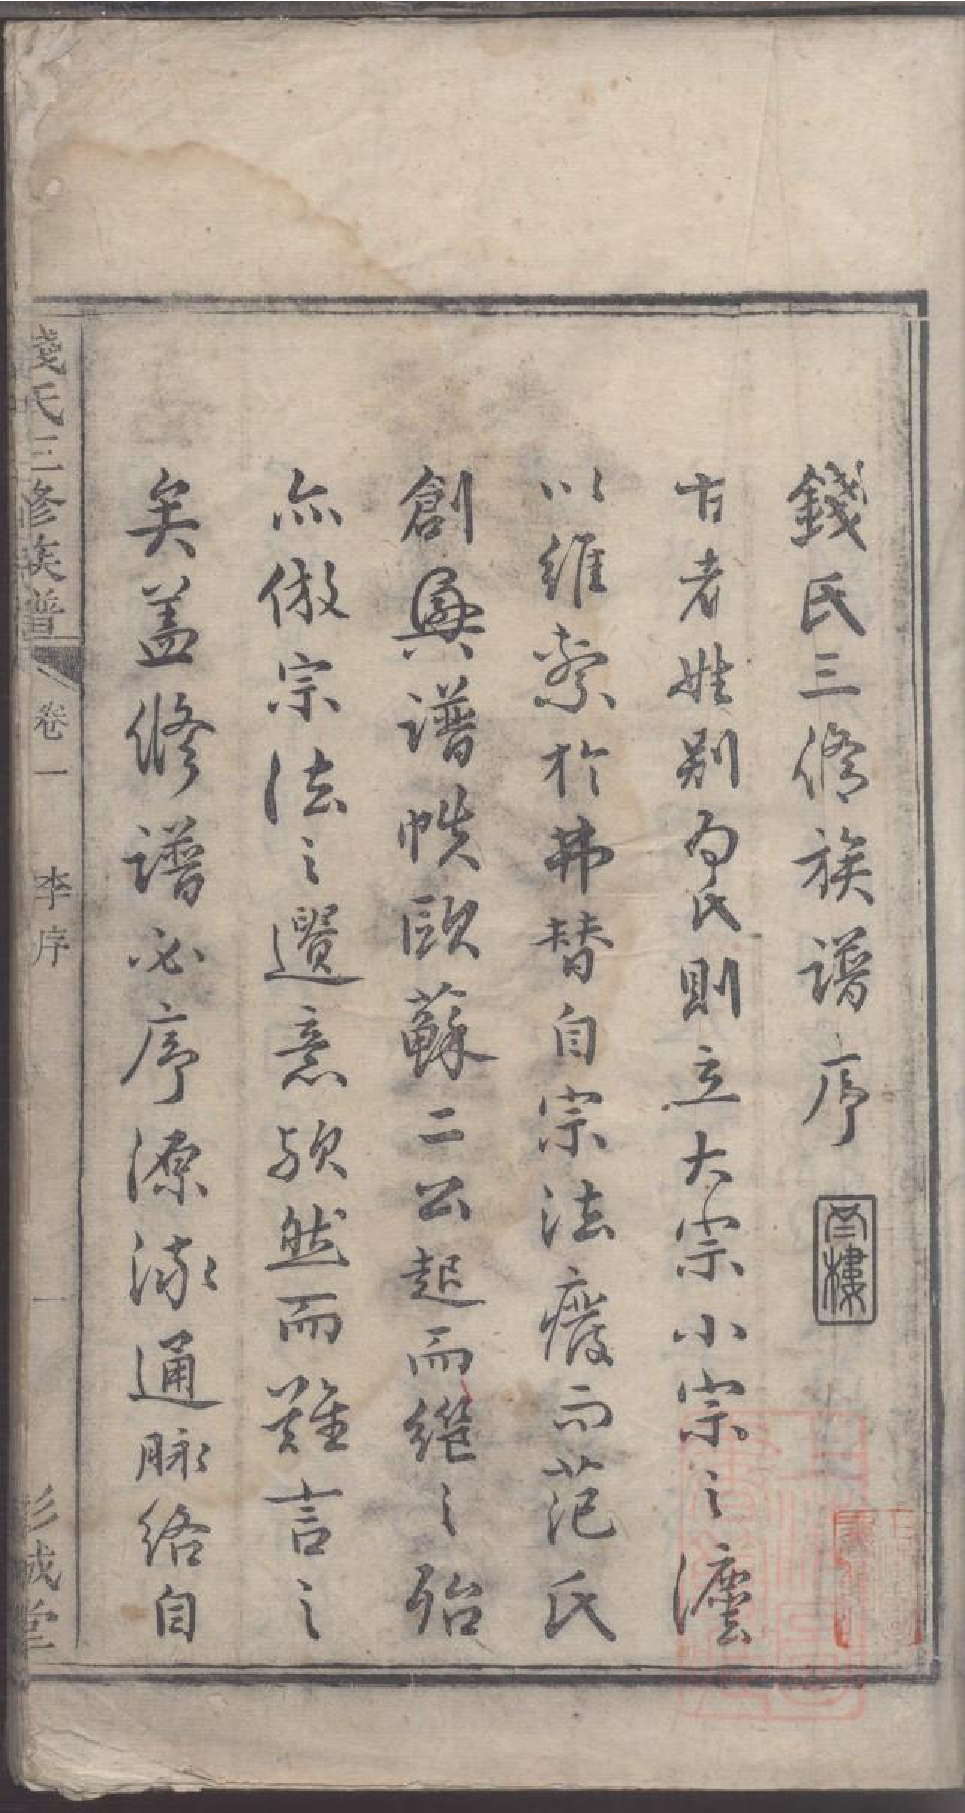 錢氏三脩族譜序
古者姓别為氏則立大宗小宗之灋
以維系於弗替自宗法廢而范氏
創興譜帙歐蘇二公起而繼之殆
亦倣宗法之遺意歟然而難言之
矣盖修譜必序源流通脉絡自
錢氏三修族譜
卷一
李序
一
彭城堂